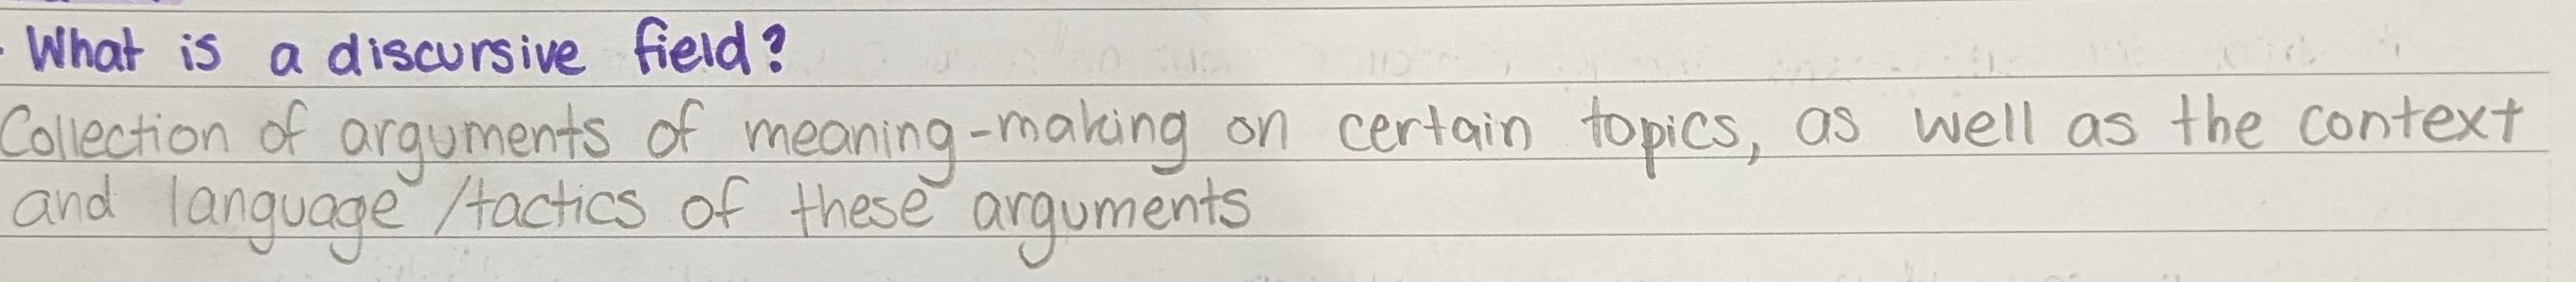 What is a discursive field?
Collection of arguments of meaning-making on certain topics, as well as the context
and language /tactics of these arguments